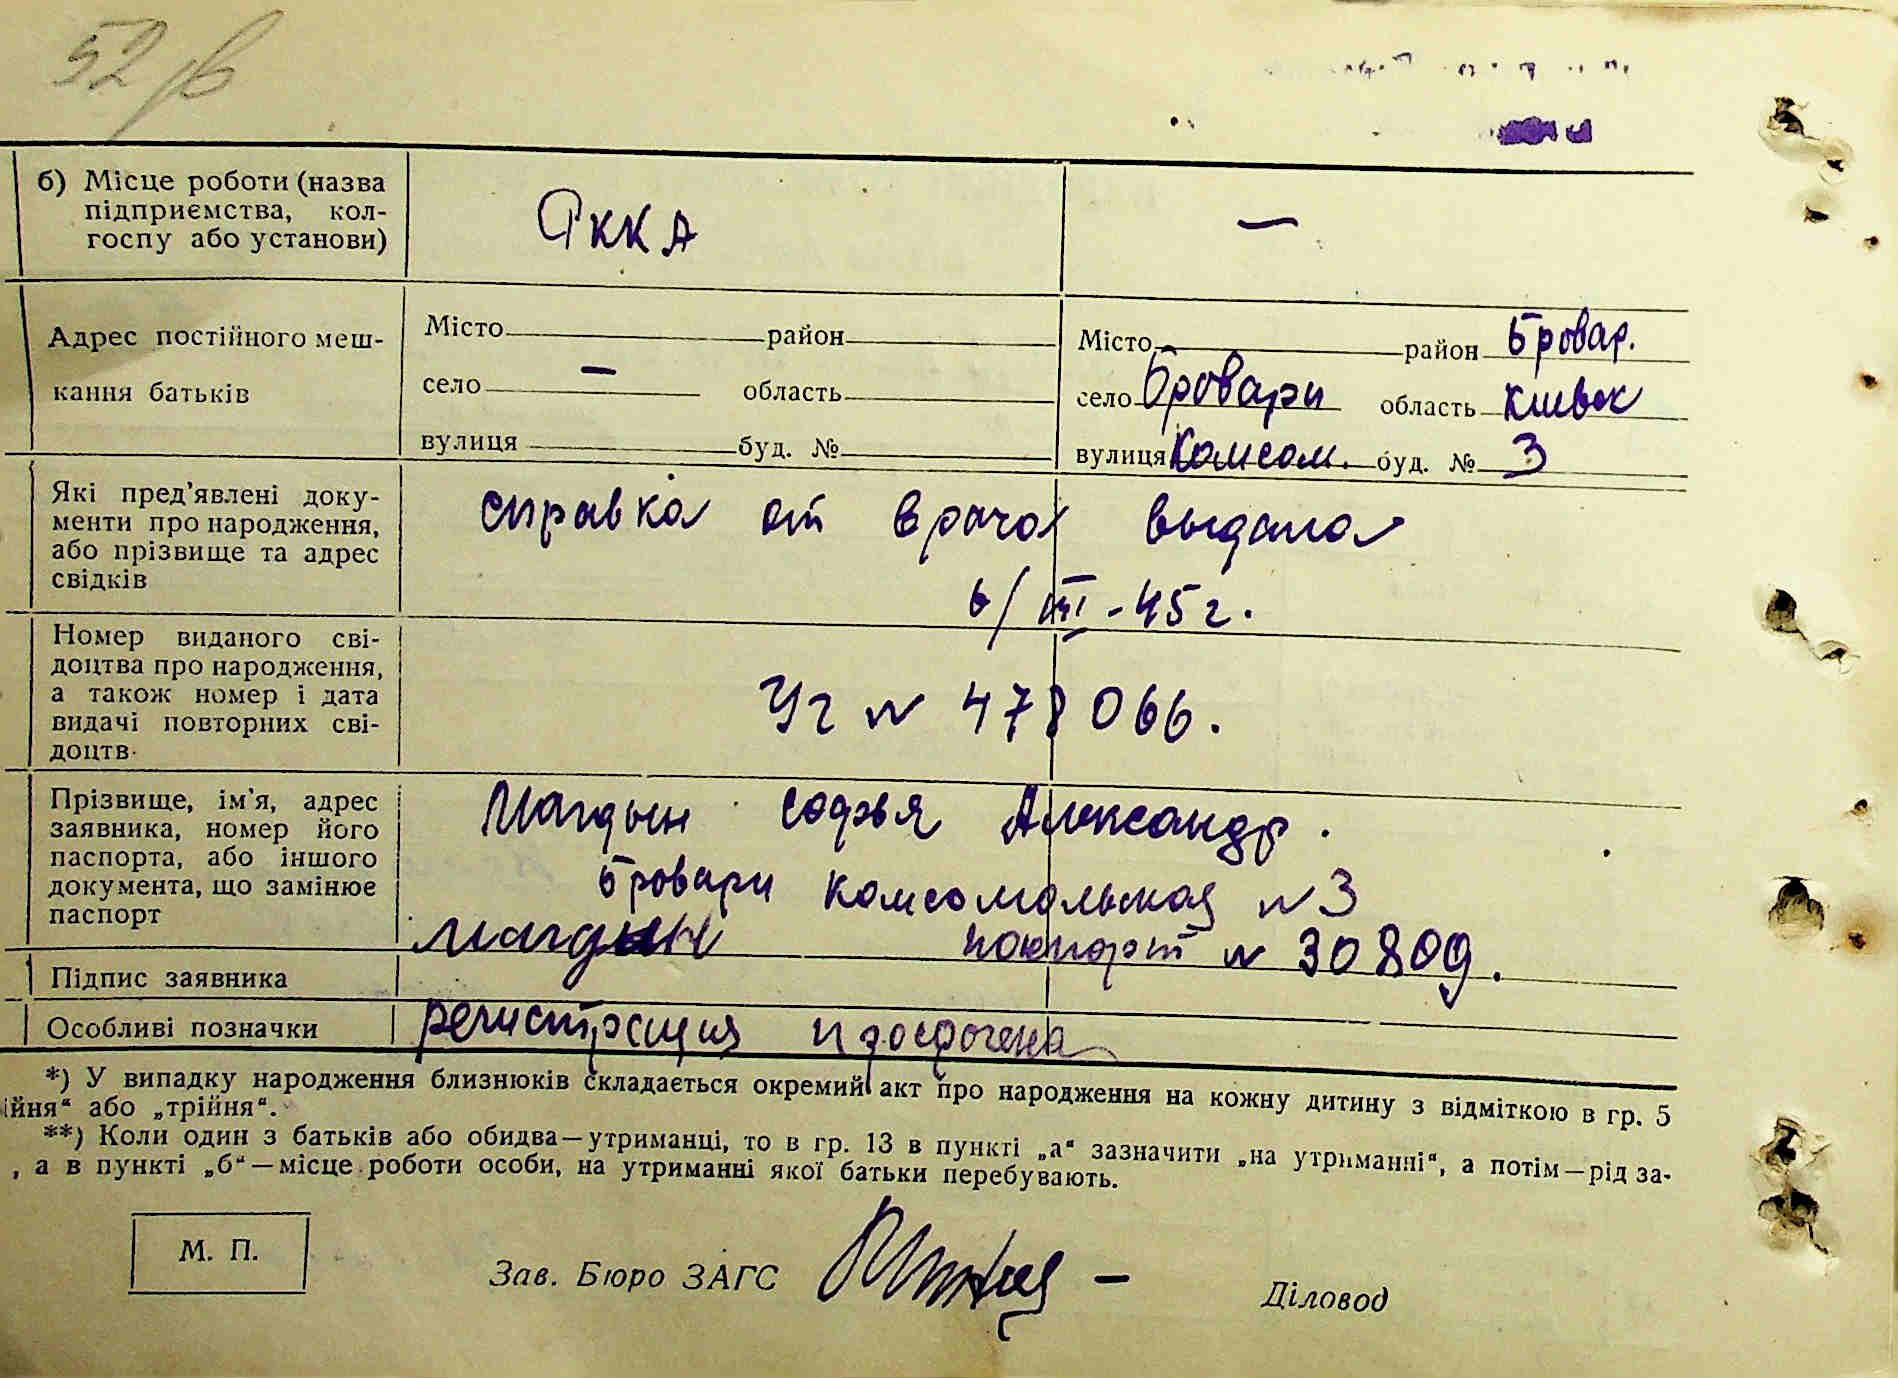 52 зв
б) Місце роботи (назва
підприємства, кол-
госпу або установи)
РККА
—
Адрес постійного меш-
кання батьків
Місто район
село — область
вулиця буд. №
Місто район Бровар.
село Бровари область Киевск
вулиця Комсом. буд. № 3
Які пред'явлені доку-
менти про народження,
або прізвище та адрес
свідків
справка от врача выдана
6/III-45 г.
Номер виданого сві-
доцтва про народження,
а також номер і дата
видачі повторних сві-
доцтв.
УГ N 478066.
Прізвище, ім'я, адрес
заявника, номер його
паспорта, або іншого
документа, що замінює
паспорт
Магдын Софья Александр.
Бровари Комсомольская N 3
паспорт N 30809.
Підпис заявника
Магдын
Особливі позначки
регистрация просрочена
*) У випадку народження близнюків складається окремий акт про народження на кожну дитину з відміткою в гр. 5
ійня“ або „трійня“.
**) Коли один з батьків або обидва—утриманці, то в гр. 13 в пункті „а“ зазначити „на утриманні“, а потім—рід за-
, а в пункті „б“—місце роботи особи, на утриманні якої батьки перебувають.
М. П.
Зав. Бюро ЗАГС
Діловод